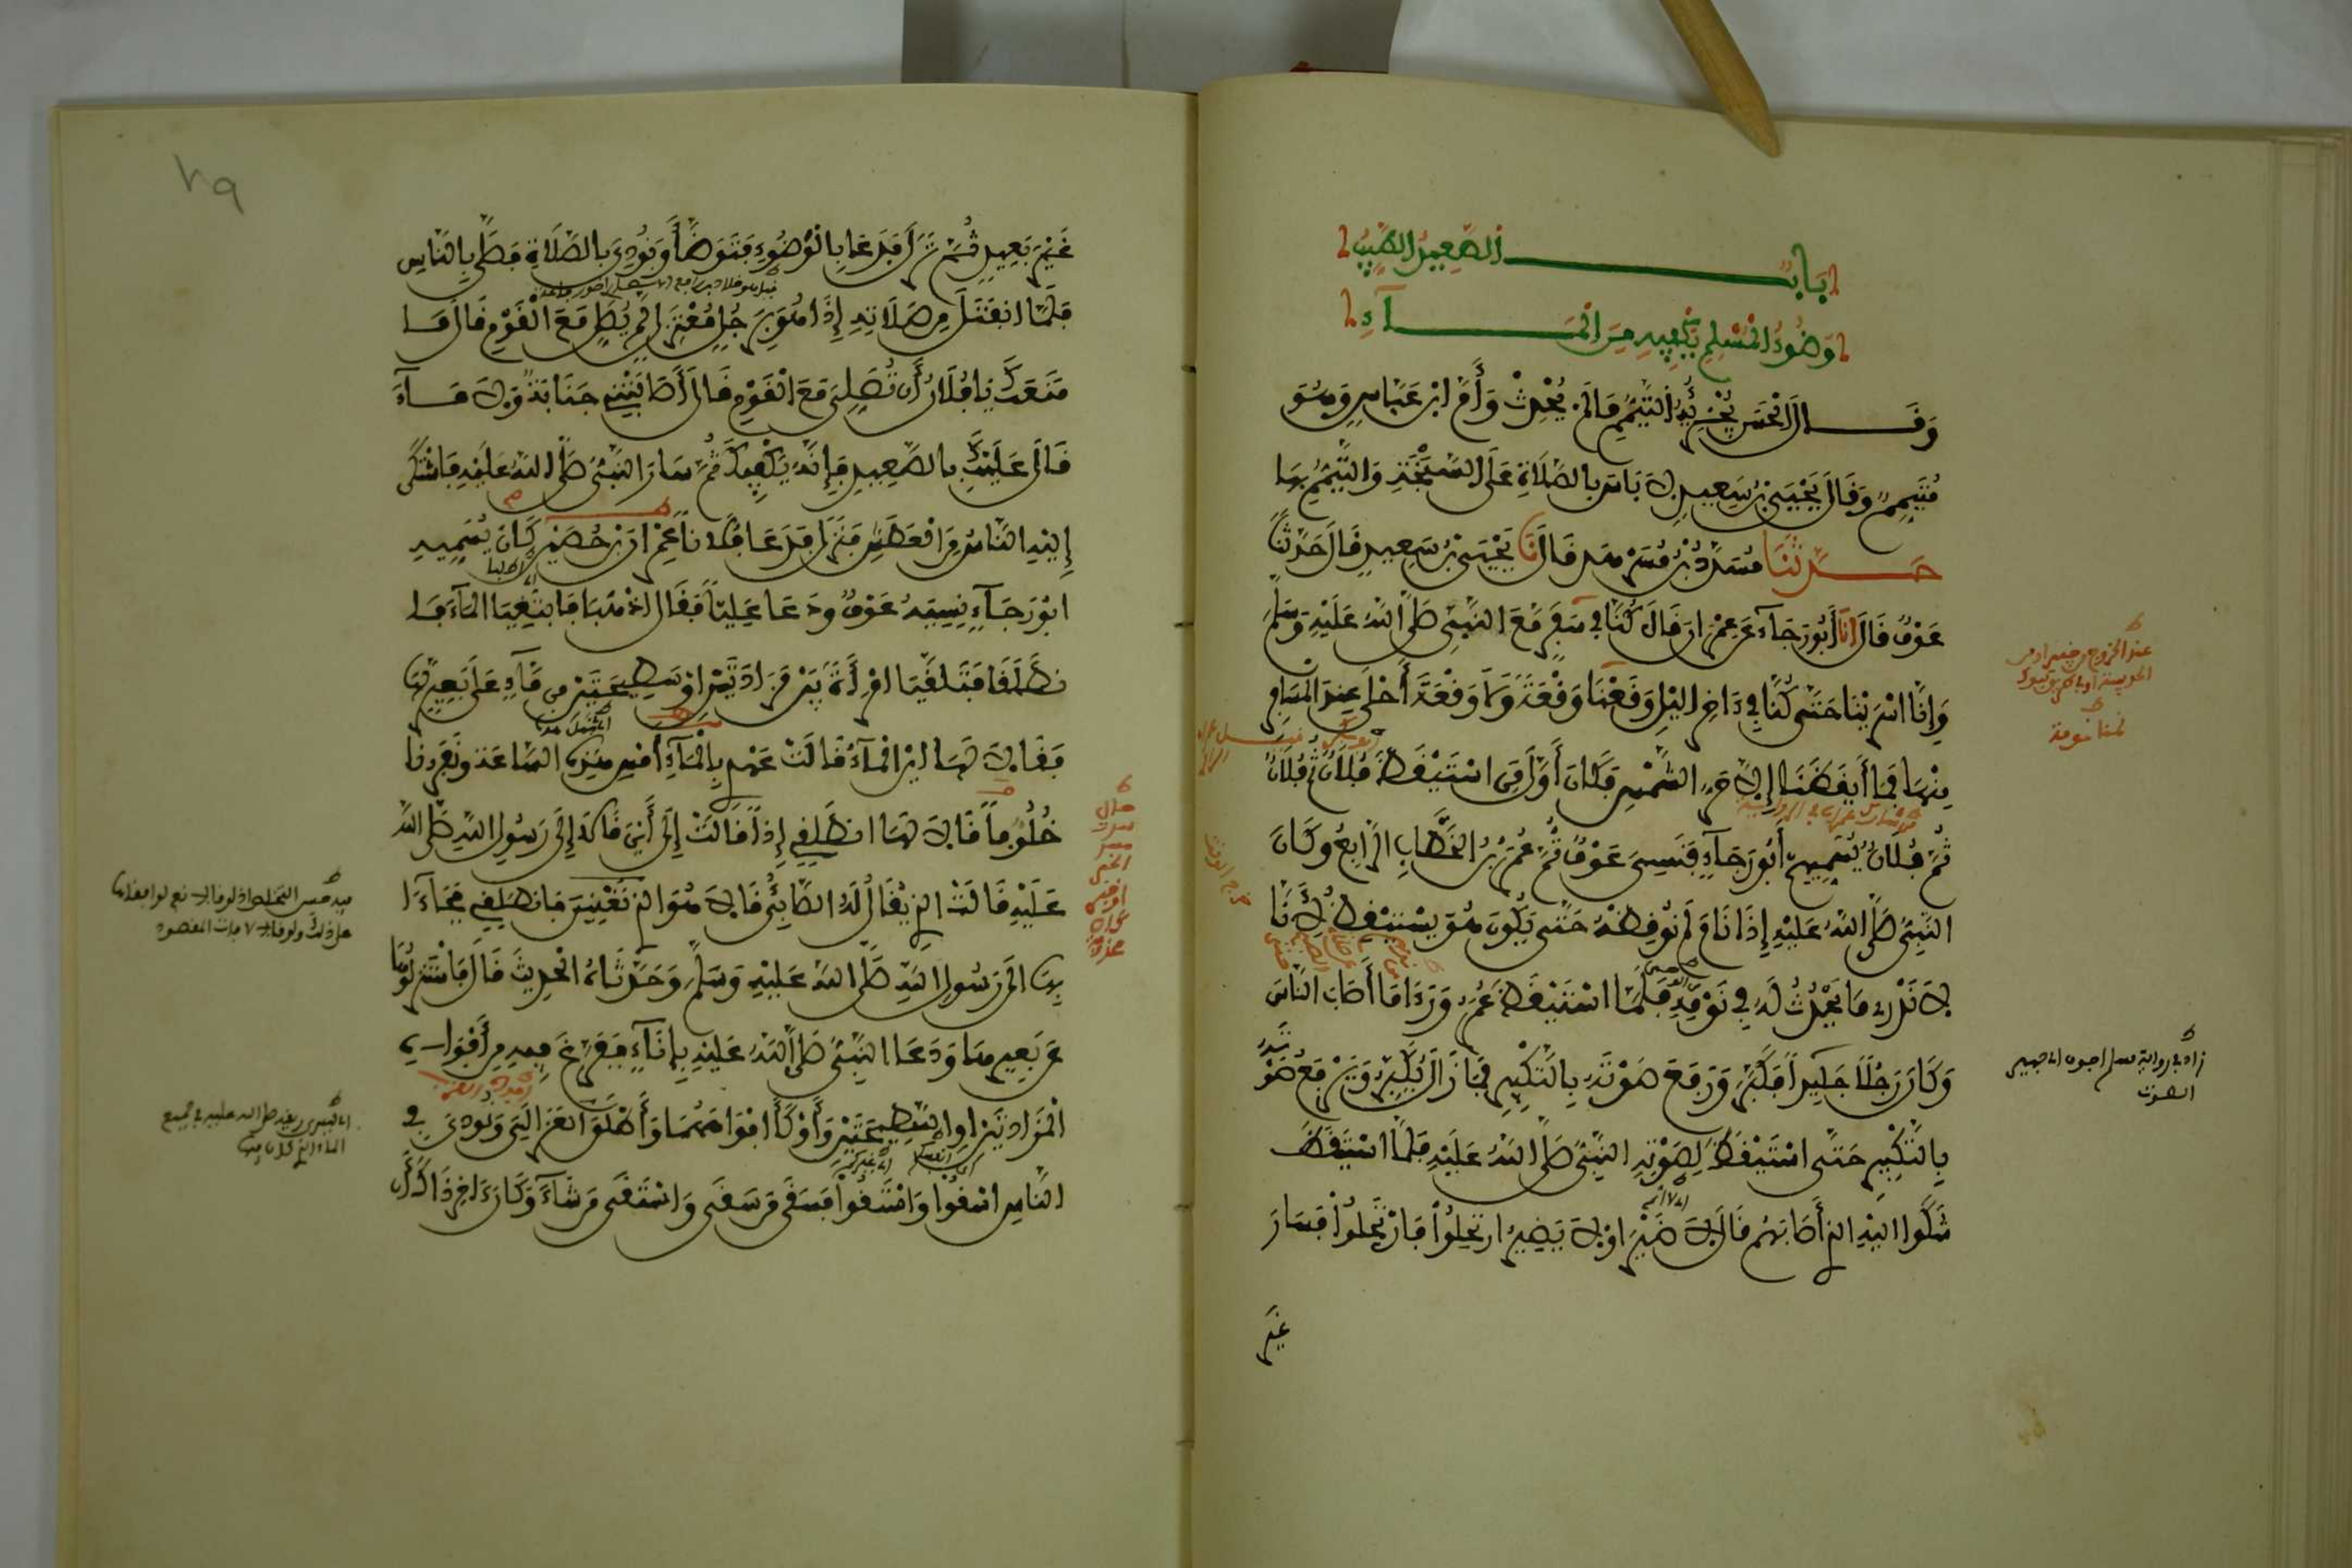 بَابٌ الصَّعِيدُ الطَّيِّبُ
وَضُوءُ الْمُسْلِمِ يَكْفِيهِ مِنَ الْمَآءِ
وَقَالَ الْحَسَنُ يُجْزِئُهُ التَّيَمُّمُ مَا لَمْ يُحْدِثْ وَأَمَّ ابْنُ عَبَّاسٍ وَهُوَ
مُتَيَمِّمٌ وَقَالَ يَحْيَى بْنُ سَعِيدٍ لَا بَأْسَ بِالصَّلَاةِ عَلَى السَّبَخَةِ وَالتَّيَمُّمِ بِهَا
حَدَّثَنَا مُسَدَّدُ بْنُ مُسَرْهَدٍ قَالَ نَا يَحْيَى بْنُ سَعِيدٍ قَالَ حَدَّثَنَا
عَوْفٌ قَالَ انَا أَبُو رَجَآءٍ عَنْ عِمْرَانَ قَالَ كُنَّا فِي سَفَرٍ مَعَ النَّبِيِّ صَلَّى اللهُ عَلَيْهِ وَسَلَّمَ
وَإِنَّا اسْرَيْنَا حَتَّى كُنَّا فِي ءَاخِرِ اللَّيْلِ وَقَعْنَا وَقْعَةً وَلَا وَقْعَةَ أَحْلَى عِنْدَ الْمُسَافِرِ
مِنْهَا فَمَا أَيْقَظَنَا إِلَّا حَرُّ الشَّمْسِ فَكَانَ أَوَّلَ مَنِ اسْتَيْقَظَ فُلَانٌ ثُمَّ فُلَانٌ
ثُمَّ فُلَانٌ يُسَمِّيهِمْ أَبُو رَجَآءٍ فَنَسِيَ عَوْفٌ ثُمَّ عُمَرُ بْنُ الْخَطَّابِ الرَّابِعُ وَكَانَ
النَّبِيُّ صَلَّى اللهُ عَلَيْهِ إِذَا نَامَ لَمْ نُوقِظْهُ حَتَّى يَكُونَ هُوَ يَسْتَيْقِظُ لِأَنَّا
لَا نَدْرِي مَا يَحْدُثُ لَهُ فِي نَوْمِهِ فَلَمَّا اسْتَيْقَظَ عُمَرُ وَرَءَا مَا أَصَابَ النَّاسَ
وَكَانَ رَجُلًا جَلِيدًا فَكَبَّرَ وَرَفَعَ صَوْتَهُ بِالتَّكْبِيرِ فَمَا زَالَ يُكَبِّرُ وَيَرْفَعُ صَوْتَهُ
بِالتَّكْبِيرِ حَتَّى اسْتَيْقَظَ لِصَوْتِهِ النَّبِيُّ صَلَّى اللهُ عَلَيْهِ فَلَمَّا اسْتَيْقَظَ
شَكَوْا الَيْهِ الذِي أَصَابَهُمْ قَالَ لَا ضَيْرَ اوْ لَا يَضِيرُ ارْتَحِلُوا فَارْتَحَلُوا فَسَارَ
غَيْرَ
زاد في رواية مسلم اجوف اي جهير
الصوت
٧٩
غَيْرَ بَعِيدٍ ثُمَّ نَزَلَ فَدَعَا بِالْوَضُوءِ فَتَوَضَّأَ وَنُودِيَ بِالصَّلَاةِ فَصَلَّى بِالنَّاسِ
فَلَمَّا انْفَتَلَ مِنْ صَلَاتِهِ إِذَا هُوَ بِرَجُلٍ مُعْتَزِلٍ لَمْ يُصَلِّ مَعَ الْقَوْمِ قَالَ مَا
مَنَعَكَ يَا فُلَانُ أَنْ تُصَلِّيَ مَعَ الْقَوْمِ قَالَ أَصَابَتْنِي جَنَابَةٌ وَلَا مَآءَ
قَالَ عَلَيْكَ بِالصَّعِيدِ فَإِنَّهُ يَكْفِيكَ ثُمَّ سَارَ النَّبِيُّ صَلَّى اللهُ عَلَيْهِ فَاشْتَكَى
إِلَيْهِ النَّاسُ مِنَ الْعَطَشِ فَنَزَلَ فَدَعَا فُلَانًا عِمْرَانَ بْنَ حُصَيْنٍ كَانَ يُسَمِّيهِ
ابُو رَجَآءٍ نَسِيَهُ عَوْفٌ وَدَعَا عَلِيًّا فَقَالَ اذْهَبَا فَابْتَغِيَا الْمَآءَ فَا
نْطَلَقَا فَتَلَقَّيَا امْرَأَةً بَيْنَ مَزَادَتَيْنِ اوْ سَطِيحَتَيْنِ مِنْ مَآءٍ عَلَى بَعِيرٍ لَهَا
فَقَالَا لَهَا ايْنَ الْمَآءُ قَالَتْ عَهْدِي بِالْمَآءِ أَمْسِ هَذِهِ السَّاعَةَ وَنَفَرُنَا
خُلُوفًا قَالَا لَهَا انْطَلِقِي إِذًا قَالَتْ إِلَى أَيْنَ قَالَا إِلَى رَسُولِ اللهِ صَلَّى اللهُ
عَلَيْهِ قَالَتِ الذِي يُقَالُ لَهُ الصَّابِئُ قَالَا هُوَ الذِي تَعْنِينَ فَانْطَلِقِي فَجَاءَا
بِهَا الَى رَسُولِ اللهِ صَلَّى اللهُ عَلَيْهِ وَسَلَّمَ وَحَدَّثَاهُ الْحَدِيثَ قَالَ فَاسْتَنْزَلُوهَا
عَنْ بَعِيرِهَا وَدَعَا النَّبِيُّ صَلَّى اللهُ عَلَيْهِ بِإِنَآءٍ فَفَرَّغَ فِيهِ مِنْ أَفْوَاهِ
الْمَزَادَتَيْنِ اوِ السَّطِيحَتَيْنِ وَأَوْكَأَ افْوَاهَهُمَا وَأَطْلَقَ الْعَزَالِيَ وَنُودِيَ فِي
النَّاسِ اسْقُوا وَاسْتَقُوا فَسَقَى مَنْ سَقَى وَاسْتَقَى مَنْ شَآءَ وَكَانَ ءَاخِرَ ذَاكَ أَنْ